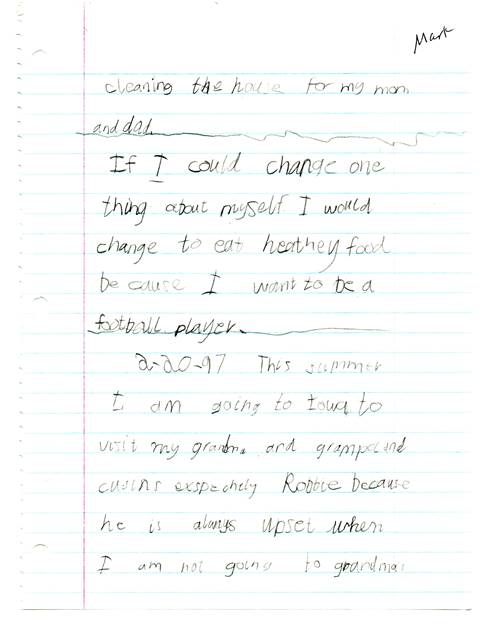 Mark
cleaning the house for my mom
and dad.
If I could change one
thing about myself I would
change to eat heathey food
be cause I want to be a
football player.
2-20-97 This summer
I am going to Iowa to
visit my grandma and grampa and
cusins exspechely Robbie because
he is always upset when
I am not going to grandmas